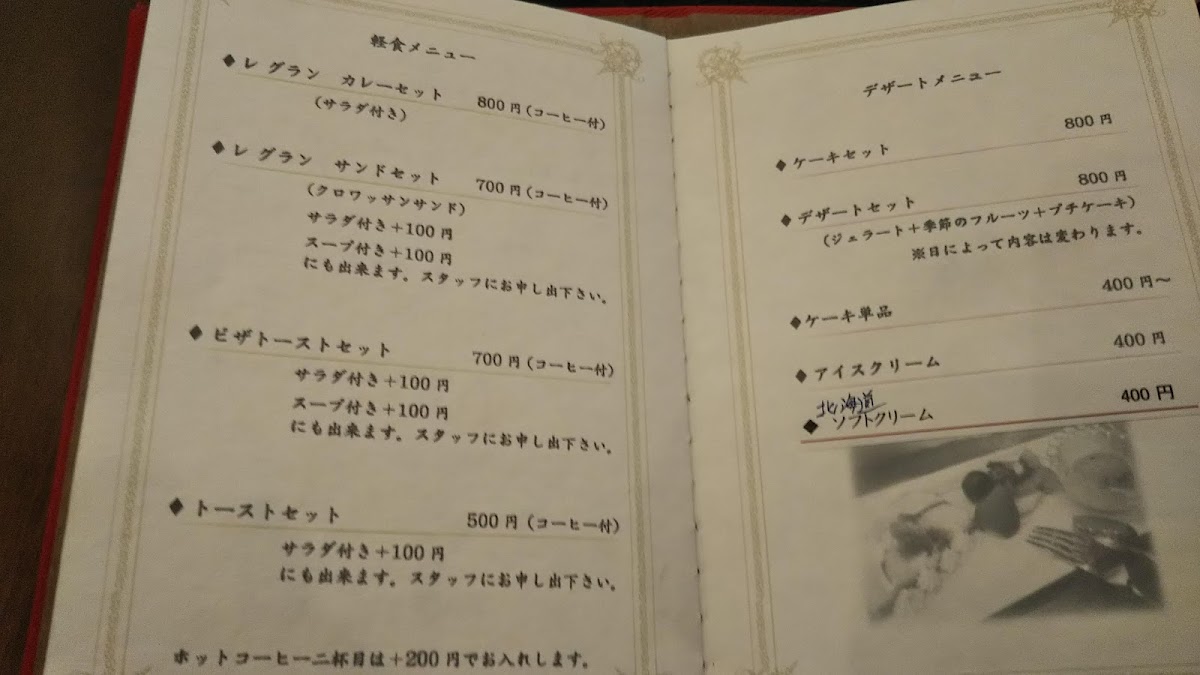 軽食メニュー
◆レ グラン カレーセット 800円(コーヒー付)
(サラダ付き)
◆レ グラン サンドセット 700円(コーヒー付)
(クロワッサンサンド)
サラダ付き+100円
スープ付き+100円
にも出来ます。スタッフにお申し出下さい。
◆ピザトーストセット 700円(コーヒー付)
サラダ付き+100円
スープ付き+100円
にも出来ます。スタッフにお申し出下さい。
◆トーストセット 500円(コーヒー付)
サラダ付き+100円
にも出来ます。スタッフにお申し出下さい。
ホットコーヒー二杯目は+200円でお入れします。
デザートメニュー
◆ケーキセット 800円
◆デザートセット 800円
(ジェラート+季節のフルーツ+プチケーキ)
※日によって内容は変わります。
◆ケーキ単品 400円~
◆アイスクリーム 400円
北海道
◆ソフトクリーム 400円